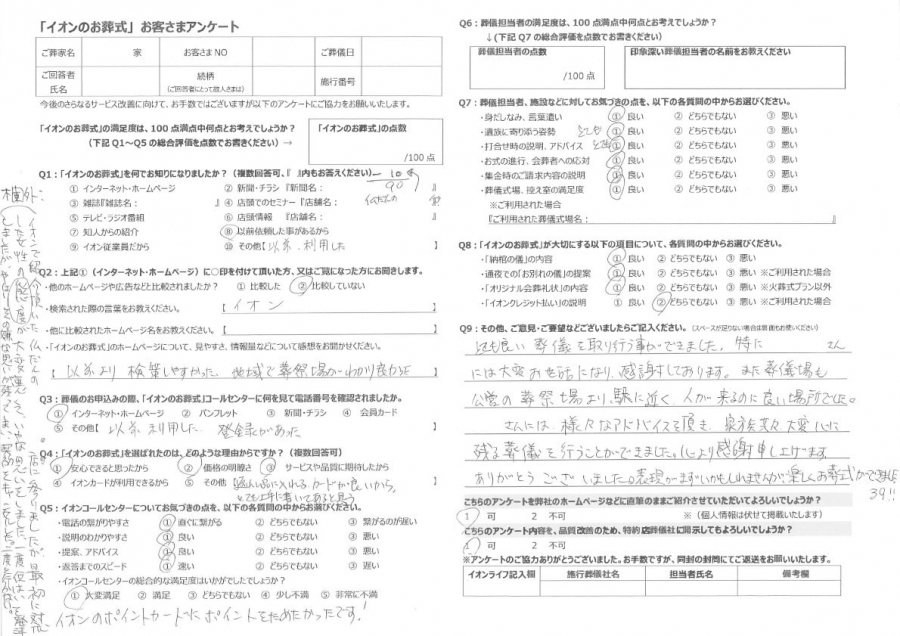 「イオンのお葬式」お客さまアンケート
ご葬家名 家 お客さまNO ご葬儀日
ご回答者氏名 続柄（ご回答者にとって故人さまは） 施行番号
今後のさらなるサービス改善に向けて、お手数ではございますが以下のアンケートにご協力をお願いいたします。
「イオンのお葬式」の満足度は、100点満点中何点とお考えでしょうか？
（下記Q1～Q5の総合評価を点数でお書きください）→
「イオンのお葬式」の点数
/100点
Q1：「イオンのお葬式」を何でお知りになりましたか？（複数回答可、『 』内もお答えください）
－10点
90
仏だんの
① インターネット・ホームページ ② 新聞・チラシ『新聞名： 』
③ 雑誌『雑誌名： 』 ④ 店頭でのセミナー『店舗名： 』
⑤ テレビ・ラジオ番組 ⑥ 店頭情報 『店舗名： 』
⑦ 知人からの紹介 ⑧ 以前依頼した事があるから
⑨ イオン従業員だから ⑩ その他【以前、利用した 】
Q2：上記①（インターネット・ホームページ）に○印を付けて頂いた方、又はご覧になった方にお聞きします。
・他のホームページや広告などと比較されましたか？ ① 比較した ② 比較していない
・検索された際の言葉をお教えください。【 イオン 】
・他に比較されたホームページ名をお教えください。【 】
・「イオンのお葬式」のホームページについて、見やすさ、情報量などについて感想をお聞かせください。
【以前より 検策しやすかった 地域で葬祭場がわかり良かった】
Q3：葬儀のお申込みの際、「イオンのお葬式」コールセンターに何を見て電話番号を確認されましたか。
① インターネット・ホームページ ② パンフレット ③ 新聞・チラシ ④ 会員カード
⑤ その他【 以前利用した 登録があった 】
Q4：「イオンのお葬式」を選ばれたのは、どのような理由からですか？（複数回答可）
① 安心できると思ったから ② 価格の明瞭さ ③ サービスや品質に期待したから
④ イオンカードが利用できるから ⑤ その他【返礼品に入れるカードが良いから。
とても上手に書いてあると思う 】
Q5：イオンコールセンターについてお気づきの点を、以下の質問の中からお選びください。
・電話の繋がりやすさ ① 直ぐに繋がる ② どちらでもない ③ 繋がるのが遅い
・説明のわかりやすさ ① 良い ② どちらでもない ③ 悪い
・提案、アドバイス ① 良い ② どちらでもない ③ 悪い
・返答までのスピード ① 速い ② どちらでもない ③ 遅い
・イオンコールセンターの総合的な満足度はいかがでしたでしょうか？
① 大変満足 ② 満足 ③ どちらでもない ④ 少し不満 ⑤ 非常に不満
イオンのポイントカードにポイントをためたかったです！
欄外：
イオンで紹介頂いた仏だんの
店に参りましたが、最初に対応
した女性の態度が大変悪く、いやな思いをしました。
Q6：葬儀担当者の満足度は、100点満点中何点とお考えでしょうか？
↓（下記Q7の総合評価を点数でお書きください）
葬儀担当者の点数
/100点
印象深い葬儀担当者の名前をお教えください
Q7：葬儀担当者、施設などに対してお気づきの点を、以下の各質問の中からお選びください。
・身だしなみ、言葉遣い ① 良い ② どちらでもない ③ 悪い
・遺族に寄り添う姿勢 とても ① 良い ② どちらでもない ③ 悪い
・打合せ時の説明、アドバイス とても ① 良い ② どちらでもない ③ 悪い
・お式の進行、会葬者への応対 ① 良い ② どちらでもない ③ 悪い
・集金時のご請求内容の説明 ① 良い ② どちらでもない ③ 悪い
・葬儀式場、控え室の満足度 ① 良い ② どちらでもない ③ 悪い
※ご利用された場合
『ご利用された葬儀式場名： 』
Q8：「イオンのお葬式」が大切にする以下の項目について、各質問の中からお選びください。
・「納棺の儀」の内容 ① 良い ② どちらでもない ③ 悪い
・通夜での「お別れの儀」の提案 ① 良い ② どちらでもない ③ 悪い ※ご利用された場合
・「オリジナル会葬礼状」の内容 ① 良い ② どちらでもない ③ 悪い ※火葬式プラン以外
・「イオンクレジット払い」の説明 ① 良い ② どちらでもない ③ 悪い ※ご利用された場合
Q9：その他、ご意見・ご要望などございましたらご記入ください。（スペースが足りない場合は裏面もお使いください）
とても良い 葬儀を取り行う事ができました。特に さん
には大変お世話になり、感謝しております。また葬儀場も
公営の葬祭場より、駅に近く、人が来るのに良い場所でした。
さんには、様々なアドバイスを頂き、家族共々大変心に
残る葬儀を行うことができました。心より感謝申し上げます
ありがとうございました。表現がまずいかもしれませんが、楽しくお葬式ができました
39!!
こちらのアンケートを弊社のホームページなどに直筆のままご紹介させていただいてよろしいでしょうか？
1 可 2 不可 ※（個人情報は伏せて掲載いたします）
こちらのアンケート内容を、品質改善のため、特約店葬儀社に開示してもよろしいでしょうか？
1 可 2 不可
※アンケートのご協力ありがとうございました。お手数ですが、同封の封筒にてご返送をお願いいたします。
イオンライフ記入欄 施行葬儀社名 担当者氏名 備考欄